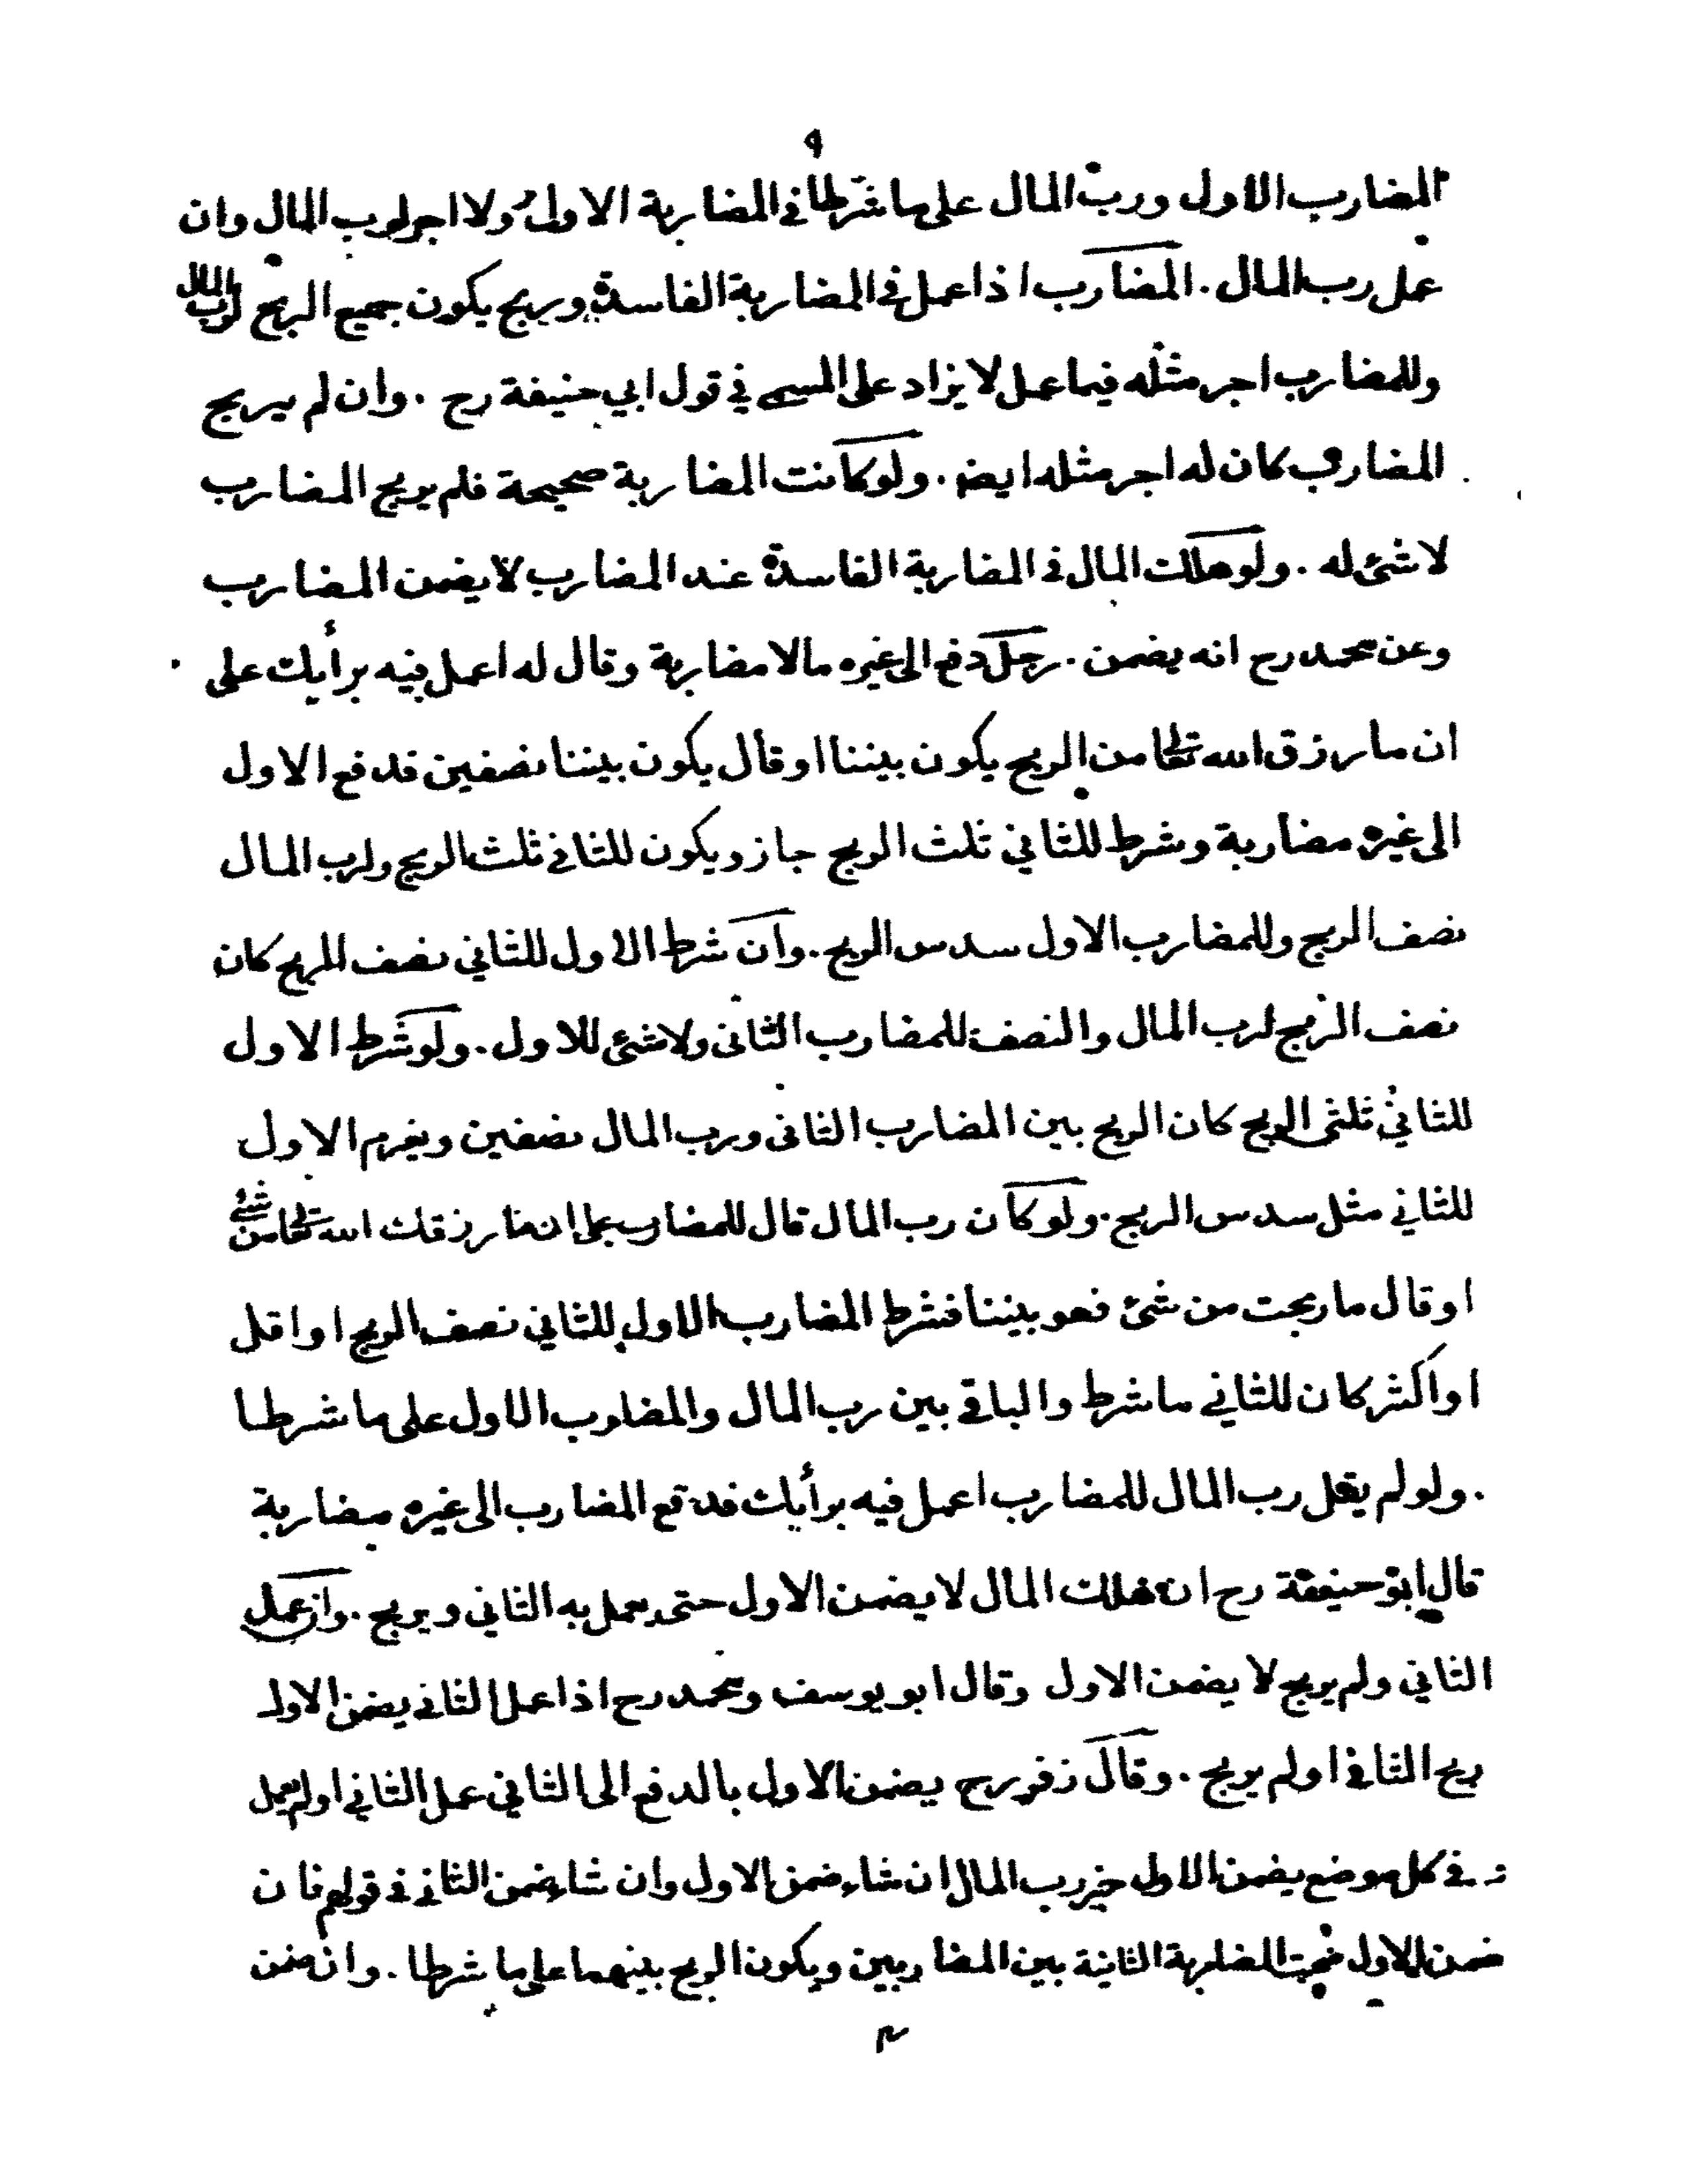 ٩
المضارب الاول ورب المال على ما شرطا في المضاربة الاولى ولا اجر لرب المال وان
عمل رب المال . المضارب اذا عمل في المضاربة الفاسدة وربح يكون جميع الربح لرب المال
وللمضارب اجر مثله فيما عمل لا يزاد على المسمى في قول ابي حنيفة رح . وان لم يربح
المضارب كان له اجر مثله ايضا . ولو كانت المضاربة صحيحة فلم يربح المضارب
لا شئ له . ولو هلك المال في المضاربة الفاسدة عند المضارب لا يضمن المضارب
وعن محمد رح انه يضمن . رجل دفع الى غيره مالا مضاربة وقال له اعمل فيه برأيك على
ان ما رزق الله تعالى من الربح يكون بيننا او قال يكون بيننا نصفين فدفع الاول
الى غيره مضاربة وشرط للثاني ثلث الربح جاز ويكون للثاني ثلث الربح ولرب المال
نصف الربح وللمضارب الاول سدس الربح . وان شرط الاول للثاني نصف الربح كان
نصف الربح لرب المال والنصف للمضارب الثاني ولا شئ للاول . ولو شرط الاول
للثاني ثلثى الربح كان الربح بين المضارب الثاني ورب المال نصفين ويغرم الاول
للثاني مثل سدس الربح . ولو كان رب المال قال للمضارب على ان ما رزقك الله تعالى من شئ
او قال ما ربحت من شئ فهو بيننا فشرط المضارب الاول للثاني نصف الربح او اقل
او اكثر كان للثاني ما شرط والباقي بين رب المال والمضارب الاول على ما شرطا
. ولو لم يقل رب المال للمضارب اعمل فيه برأيك فدفع المضارب الى غيره مضاربة
قال ابو حنيفة رح ان هلك المال لا يضمن الاول حتى يعمل به الثاني ويربح . وان عمل
الثاني ولم يربح لا يضمن الاول وقال ابو يوسف ومحمد رح اذا عمل الثاني يضمن الاول
ربح الثاني او لم يربح . وقال زفر رح يضمن الاول بالدفع الى الثاني عمل الثاني او لم يعمل
و في كل موضع يضمن الاول خير رب المال ان شاء ضمن الاول وان شاء ضمن الثاني في قولهم فان
ضمن الاول صحت المضاربة الثانية بين المضاربين ويكون الربح بينهما على ما شرطا . وان ضمن